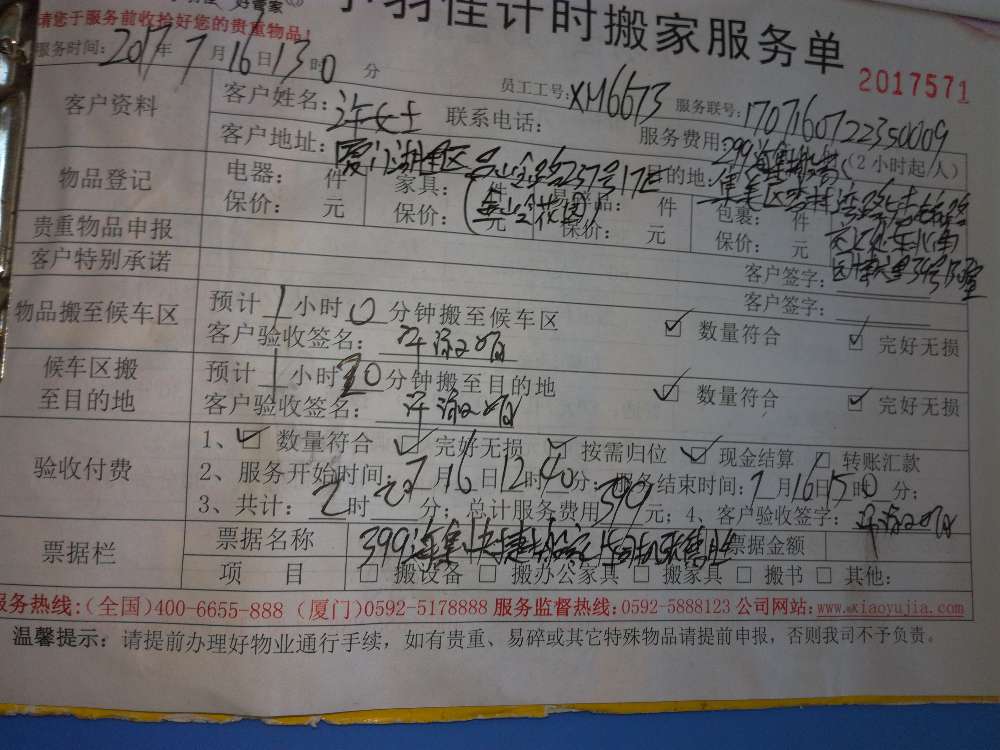 好管家
请您于服务前收拾好您的贵重物品！
小羽佳计时搬家服务单
2017571
服务时间：2017年7月16日13时0分
员工工号：XM6673 服务联号：17071607122350009
客户资料 客户姓名：许女士 联系电话： 服务费用：299 （2小时起/人）
客户地址：厦门湖里区 257号17E 目的地：集美区杏林湾路
物品登记 电器： 件 家具： 件 易碎品： 件 包裹： 件
保价： 元 保价： 元 保价： 元 保价： 元
贵重物品申报 客户签字：
客户特别承诺 客户签字：
物品搬至候车区 预计1小时0分钟搬至候车区 数量符合 完好无损
客户验收签名：
候车区搬至目的地 预计1小时20分钟搬至目的地 数量符合 完好无损
客户验收签名：
验收付费 1、数量符合 完好无损 按需归位 现金结算 转账汇款
2、服务开始时间：7月16日12时40分；服务结束时间：7月16日15时0分；
3、共计：2时20分；总计服务费用399元；4、客户验收签字：
票据栏 票据名称 399 票据金额
项目 搬设备 搬办公家具 搬家具 搬书 其他：
服务热线：（全国）400-6655-888（厦门）0592-5178888 服务监督热线：0592-5888123 公司网站：www.xiaoyujia.com
温馨提示：请提前办理好物业通行手续，如有贵重、易碎或其它特殊物品请提前申报，否则我司不予负责。